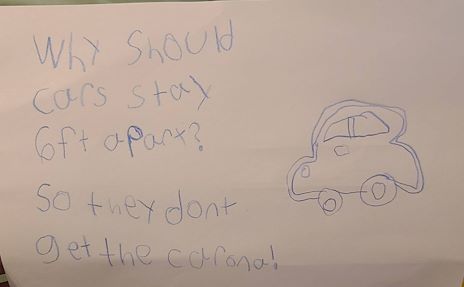 Why Should
cars stay
6ft apart?
So they dont
get the carona!